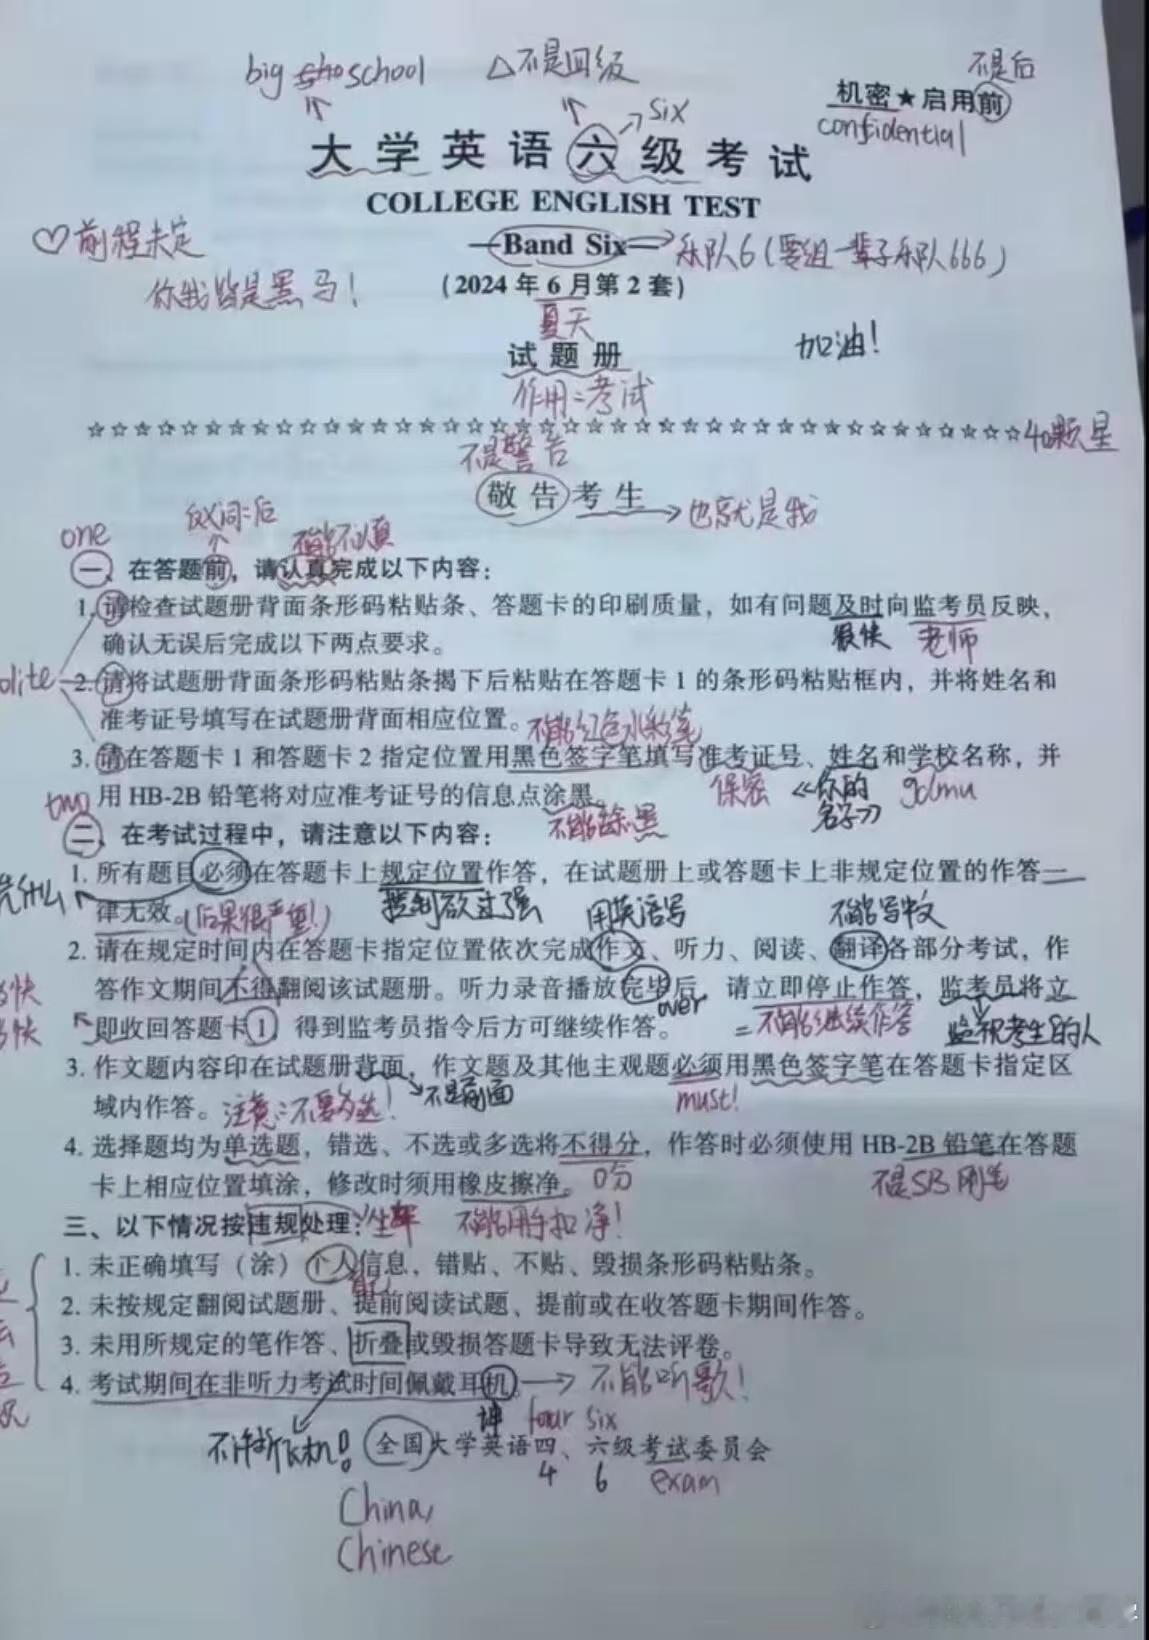 big school △不是四级 不是后
机密★启用前
confidential
six
大学英语六级考试
COLLEGE ENGLISH TEST
♡前程未定
—Band Six— 乐队6(要组一辈子乐队666)
你我皆是黑马!
(2024年6月第2套)
夏天
加油!
试题册
作用:考试
☆☆☆☆☆☆☆☆☆☆☆☆☆☆☆☆☆☆☆☆☆☆☆☆☆☆☆☆☆☆☆☆☆☆☆☆☆☆☆☆ 40颗星
不是警告
敬告考生 也就是我
one 反义词:后 不能不认真
一、在答题前,请认真完成以下内容:
1. 请检查试题册背面条形码粘贴条、答题卡的印刷质量,如有问题及时向监考员反映,
很快 老师
确认无误后完成以下两点要求。
olite
2. 请将试题册背面条形码粘贴条揭下后粘贴在答题卡1的条形码粘贴框内,并将姓名和
准考证号填写在试题册背面相应位置。 不能红色水彩笔
3. 请在答题卡1和答题卡2指定位置用黑色签字笔填写准考证号、姓名和学校名称,并
保密 《你的名字》 gdmu
用HB-2B铅笔将对应准考证号的信息点涂黑。
two 不能涂黑
二、在考试过程中,请注意以下内容:
1. 所有题目必须在答题卡上规定位置作答,在试题册上或答题卡上非规定位置的作答一
凭什么
律无效。(后果很严重!) 控制欲过强 用英语写 不能写中文
2. 请在规定时间内在答题卡指定位置依次完成作文、听力、阅读、翻译各部分考试,作
答作文期间不得翻阅该试题册。听力录音播放完毕后,请立即停止作答,监考员将立
over =不能继续作答 监视考生的人
即收回答题卡1,得到监考员指令后方可继续作答。
3. 作文题内容印在试题册背面,作文题及其他主观题必须用黑色签字笔在答题卡指定区
不是前面 must!
域内作答。 注意:不要多选!
4. 选择题均为单选题,错选、不选或多选将不得分,作答时必须使用HB-2B铅笔在答题
0分 不是SB钢笔
卡上相应位置填涂,修改时须用橡皮擦净。
不能用手扣净!
三、以下情况按违规处理:
1. 未正确填写(涂)个人信息,错贴、不贴、毁损条形码粘贴条。
自己
2. 未按规定翻阅试题册、提前阅读试题、提前或在收答题卡期间作答。
3. 未用所规定的笔作答、折叠或毁损答题卡导致无法评卷。
4. 考试期间在非听力考试时间佩戴耳机。 不能听歌!
坤 four six
不许折飞机!
全国大学英语四、六级考试委员会
4 6 exam
China,
Chinese